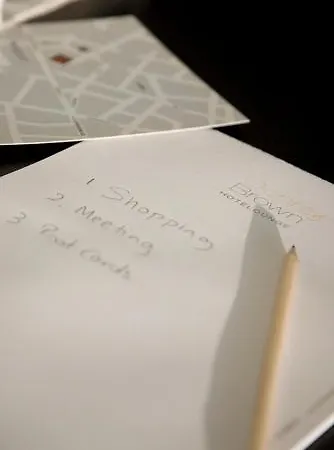 Brown
HOTELOUNGE
1. Shopping
2. Meeting
3. Post Cards